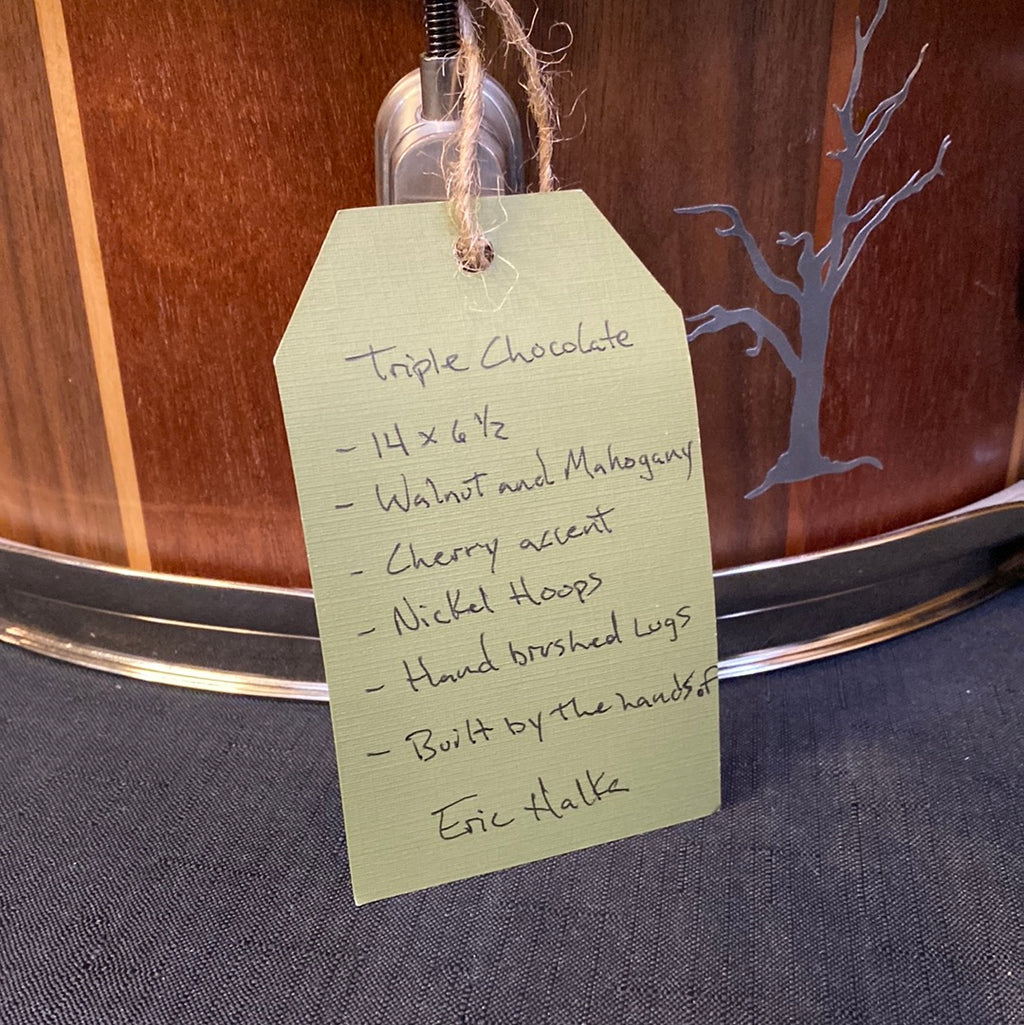 Triple Chocolate
- 14 x 6 1/2
- Walnut and Mahogany
- Cherry accent
- Nickel Hoops
- Hand brushed Lugs
- Built by the hands of
Eric Halke